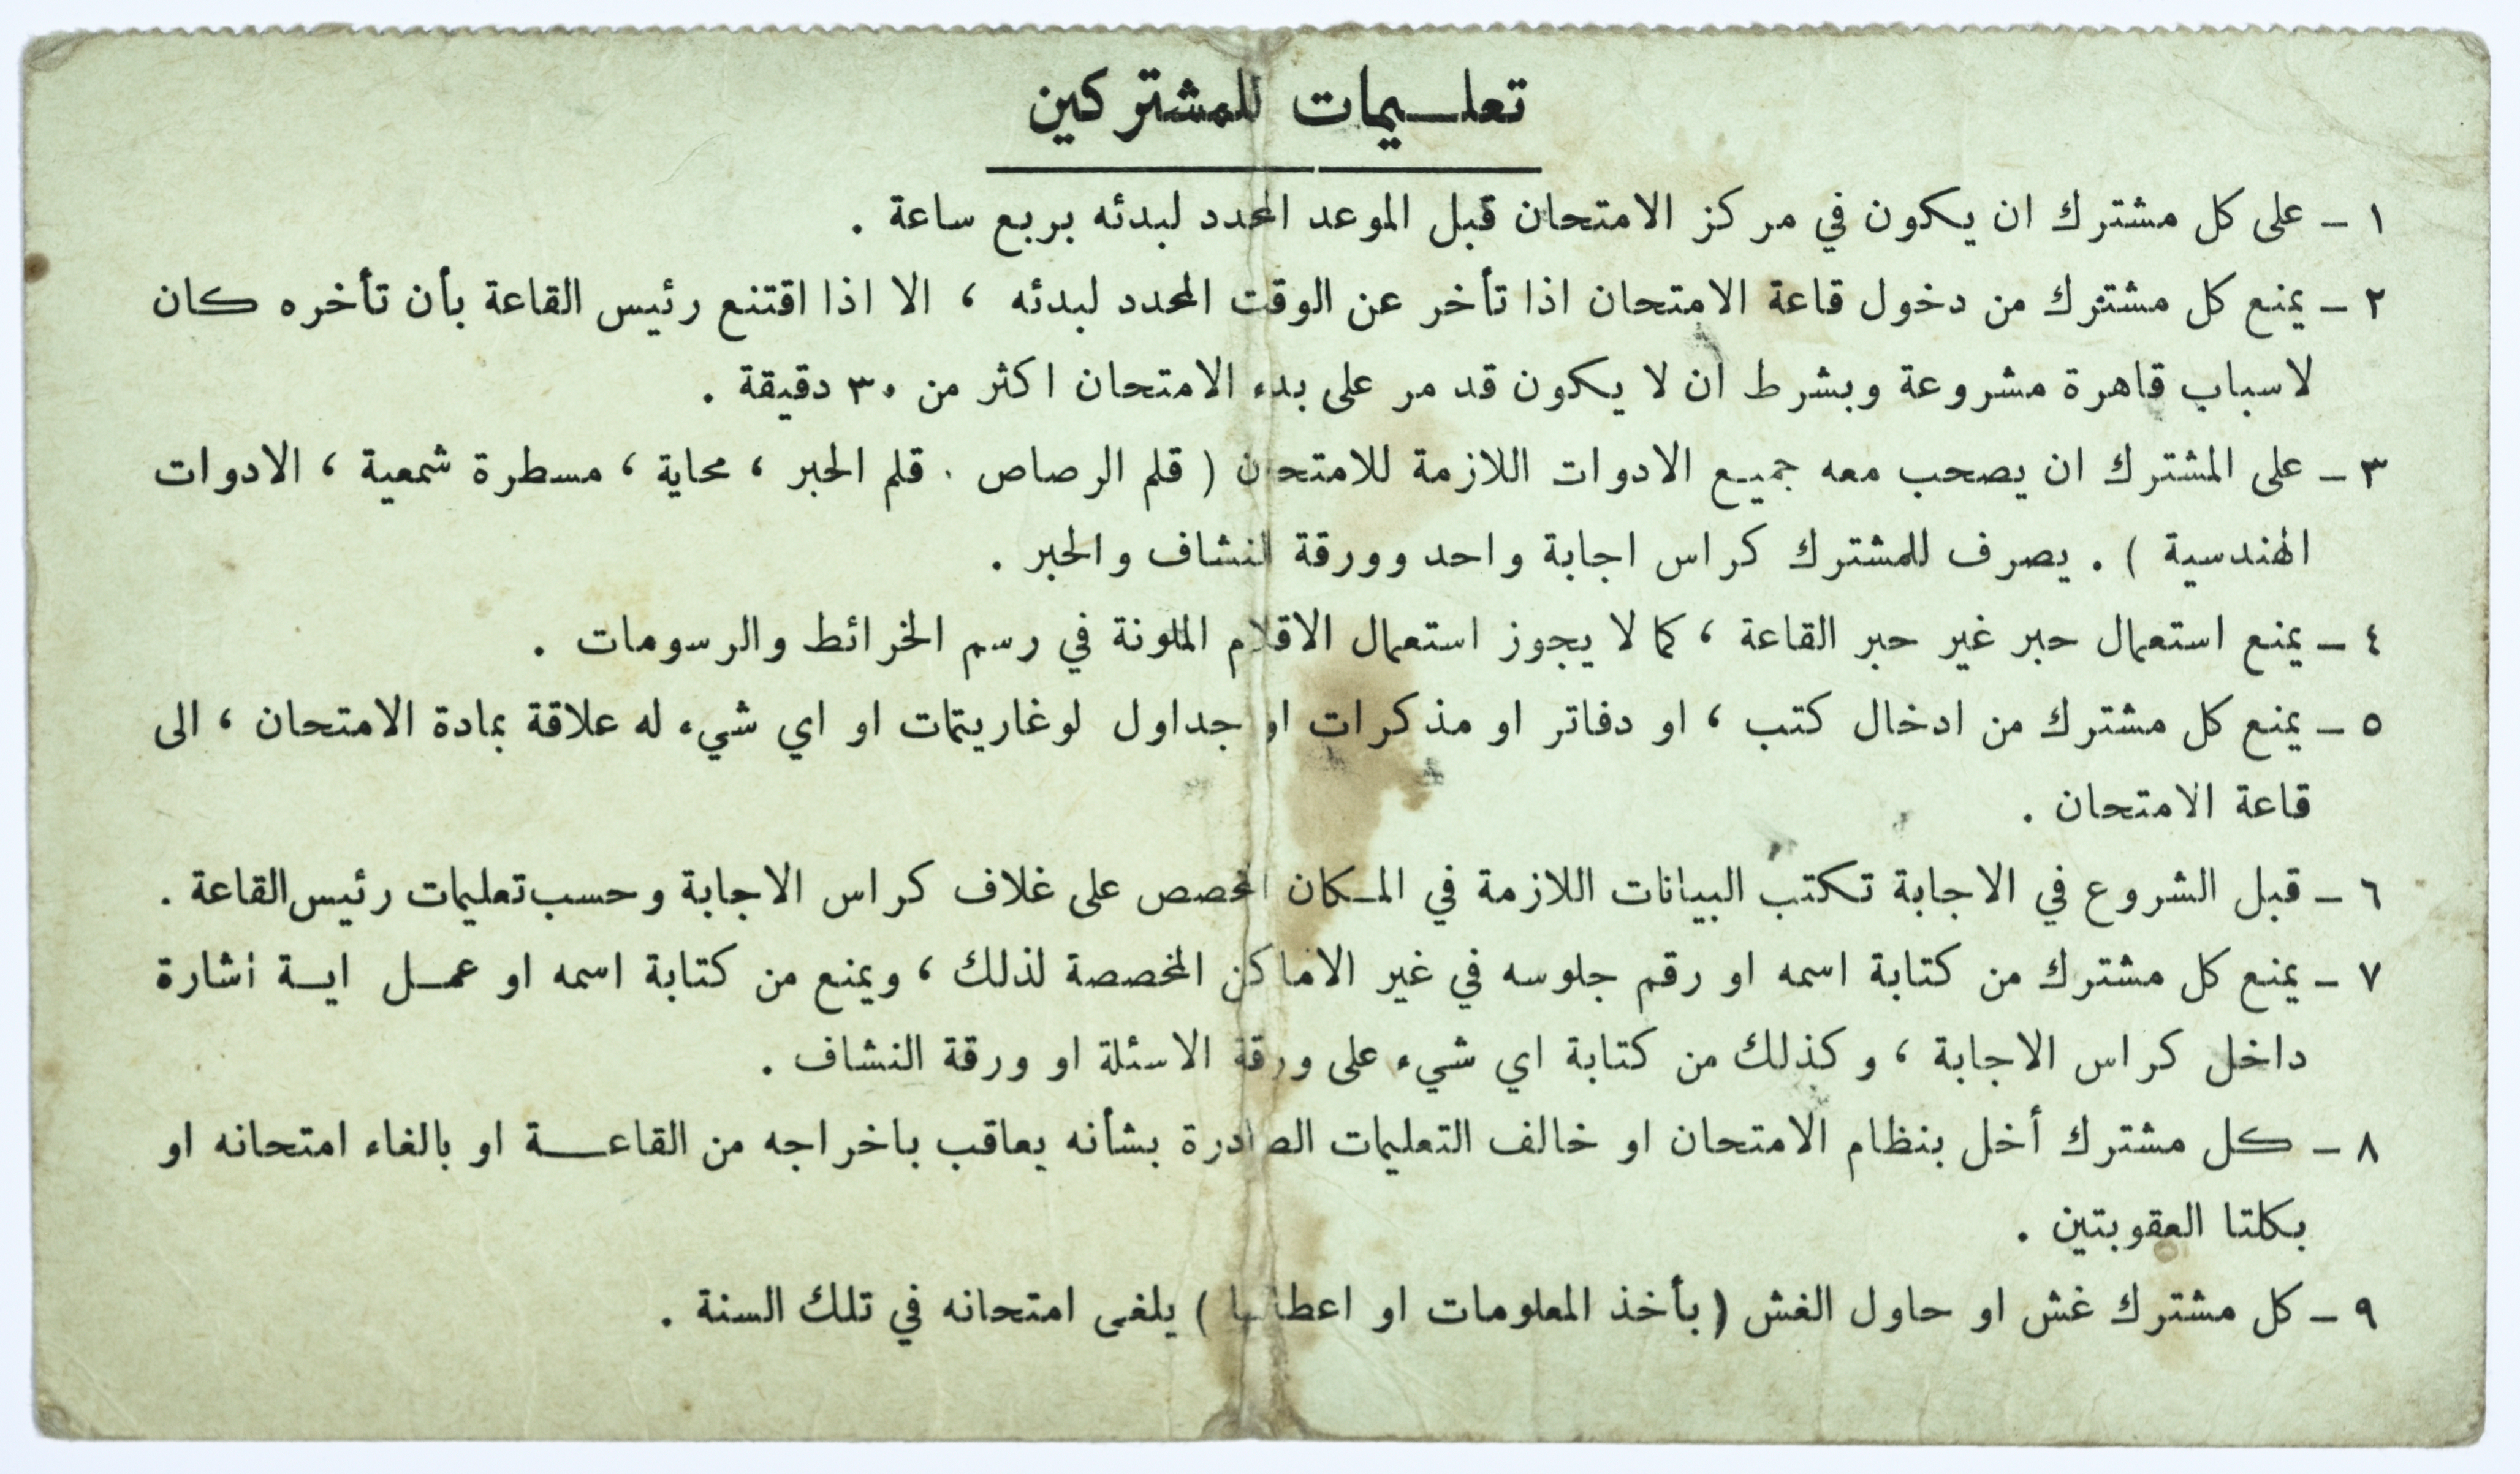 تعلـــيمات للمشتركين
١ – على كل مشترك ان يكون في مركز الامتحان قبل الموعد المحدد لبدئه بربع ساعة .
٢ – يمنع كل مشترك من دخول قاعة الامتحان اذا تأخر عن الوقت المحدد لبدئه ، الا اذا اقتنع رئيس القاعة بأن تأخره كان
لاسباب قاهرة مشروعة وبشرط ان لا يكون قد مر على بدء الامتحان اكثر من ٣٠ دقيقة .
٣ – على المشترك ان يصحب معه جميع الادوات اللازمة للامتحان ( قلم الرصاص . قلم الحبر ، محاية ، مسطرة شمعية ، الادوات
الهندسية ) . يصرف للمشترك كراس اجابة واحد وورقة النشاف والحبر .
٤ – يمنع استعمال حبر غير حبر القاعة ، كما لا يجوز استعمال الاقلام الملونة في رسم الخرائط والرسومات .
٥ – يمنع كل مشترك من ادخال كتب ، او دفاتر او مذكرات او جداول لوغاريتمات او اي شيء له علاقة بمادة الامتحان ، الى
قاعة الامتحان .
٦ – قبل الشروع في الاجابة تكتب البيانات اللازمة في المـكان المخصص على غلاف كراس الاجابة وحسب تعليمات رئيس القاعة .
٧ – يمنع كل مشترك من كتابة اسمه او رقم جلوسه في غير الاماكن المخصصة لذلك ، ويمنع من كتابة اسمه او عمـل ايـة اشارة
داخل كراس الاجابة ، وكذلك من كتابة اي شيء على ورقة الاسئلة او ورقة النشاف .
٨ – كل مشترك أخل بنظام الامتحان او خالف التعليمات الصادرة بشأنه يعاقب باخراجه من القاعـــة او بالغاء امتحانه او
بكلتا العقوبتين .
٩ – كل مشترك غش او حاول الغش ( بأخذ المعلومات او اعطائها ) يلغى امتحانه في تلك السنة .